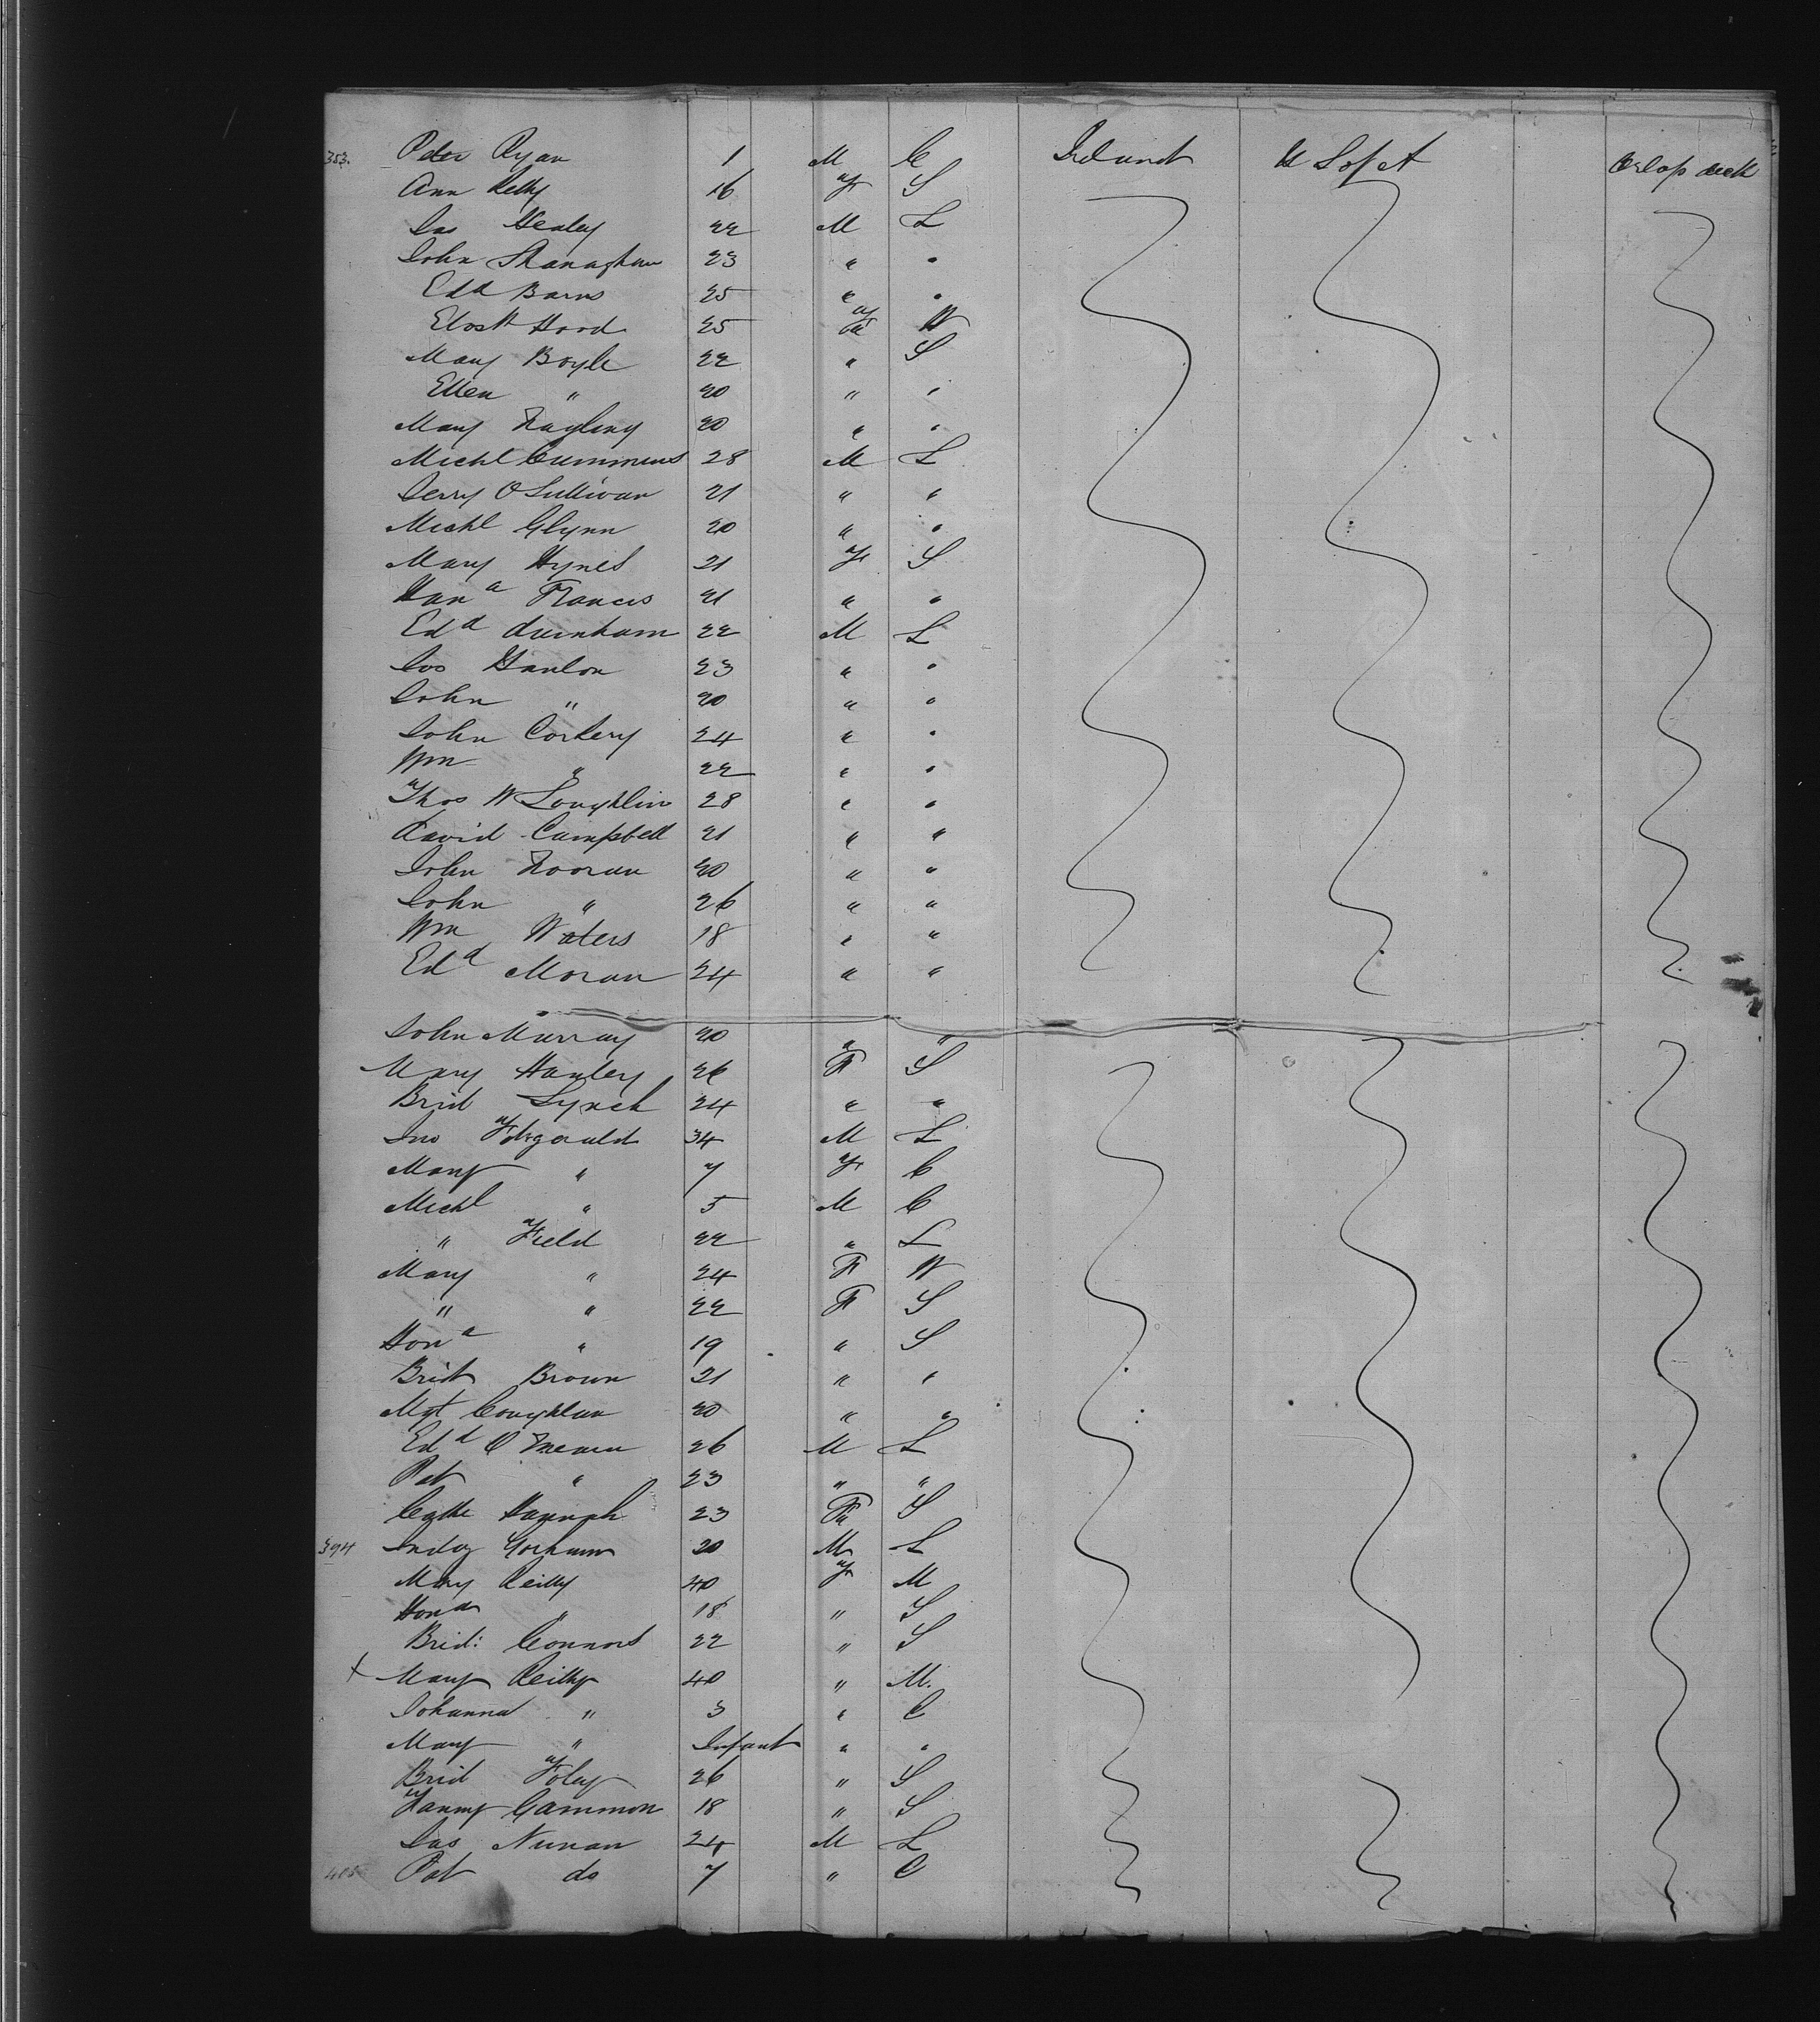 353. Peter Ryan 1 M C Ireland U S of A Orlop deck
Ann Kelly 16 F S
Jas Healey 22 M L
John Shanaghan 23 " "
Edd Barns 25 " "
Hood 25 F W
Mary Boyle 22 " S
Ellen " 20 " "
Mary 20 " "
Michl Cummins 28 M L
Jerry O Sullivan 21 " "
Michl Glynn 20 " "
Mary Hynes 21 F S
Hana Francis 21 " "
Edd Durnham 22 M L
Jos Hanlon 23 " "
John " 20 " "
John Corkery 24 " "
Wm " 22 " "
Thos McLoughlin 28 " "
David Campbell 21 " "
John Noonan 20 " "
John " 26 " "
Wm Waters 18 " "
Edd Moran 24 " "
John Murray 20 " "
Mary Hanley 26 F S
Brid Lynch 24 " "
Jno Fitzgerald 34 M L
Mary " 7 F C
Michl " 5 M C
" Field 22 " L
Mary " 24 F W
" " 22 F S
Hona " 19 " S
Brid Brown 21 " "
Mgt Coughlan 20 " "
Edd O 26 M L
Pat " 23 " "
Cathe Hannah 23 F S
394 Gorham 20 M L
Mary Reilly 40 F M
Hona " 18 " S
Brid: Connors 22 " S
X Mary Reilly 40 " M.
Johanna " 3 " C
Mary " Infant " "
Brid Foley 26 " S
Fanny Gammon 18 " S
Jas Nunan 24 M L
Pat do 7 " C